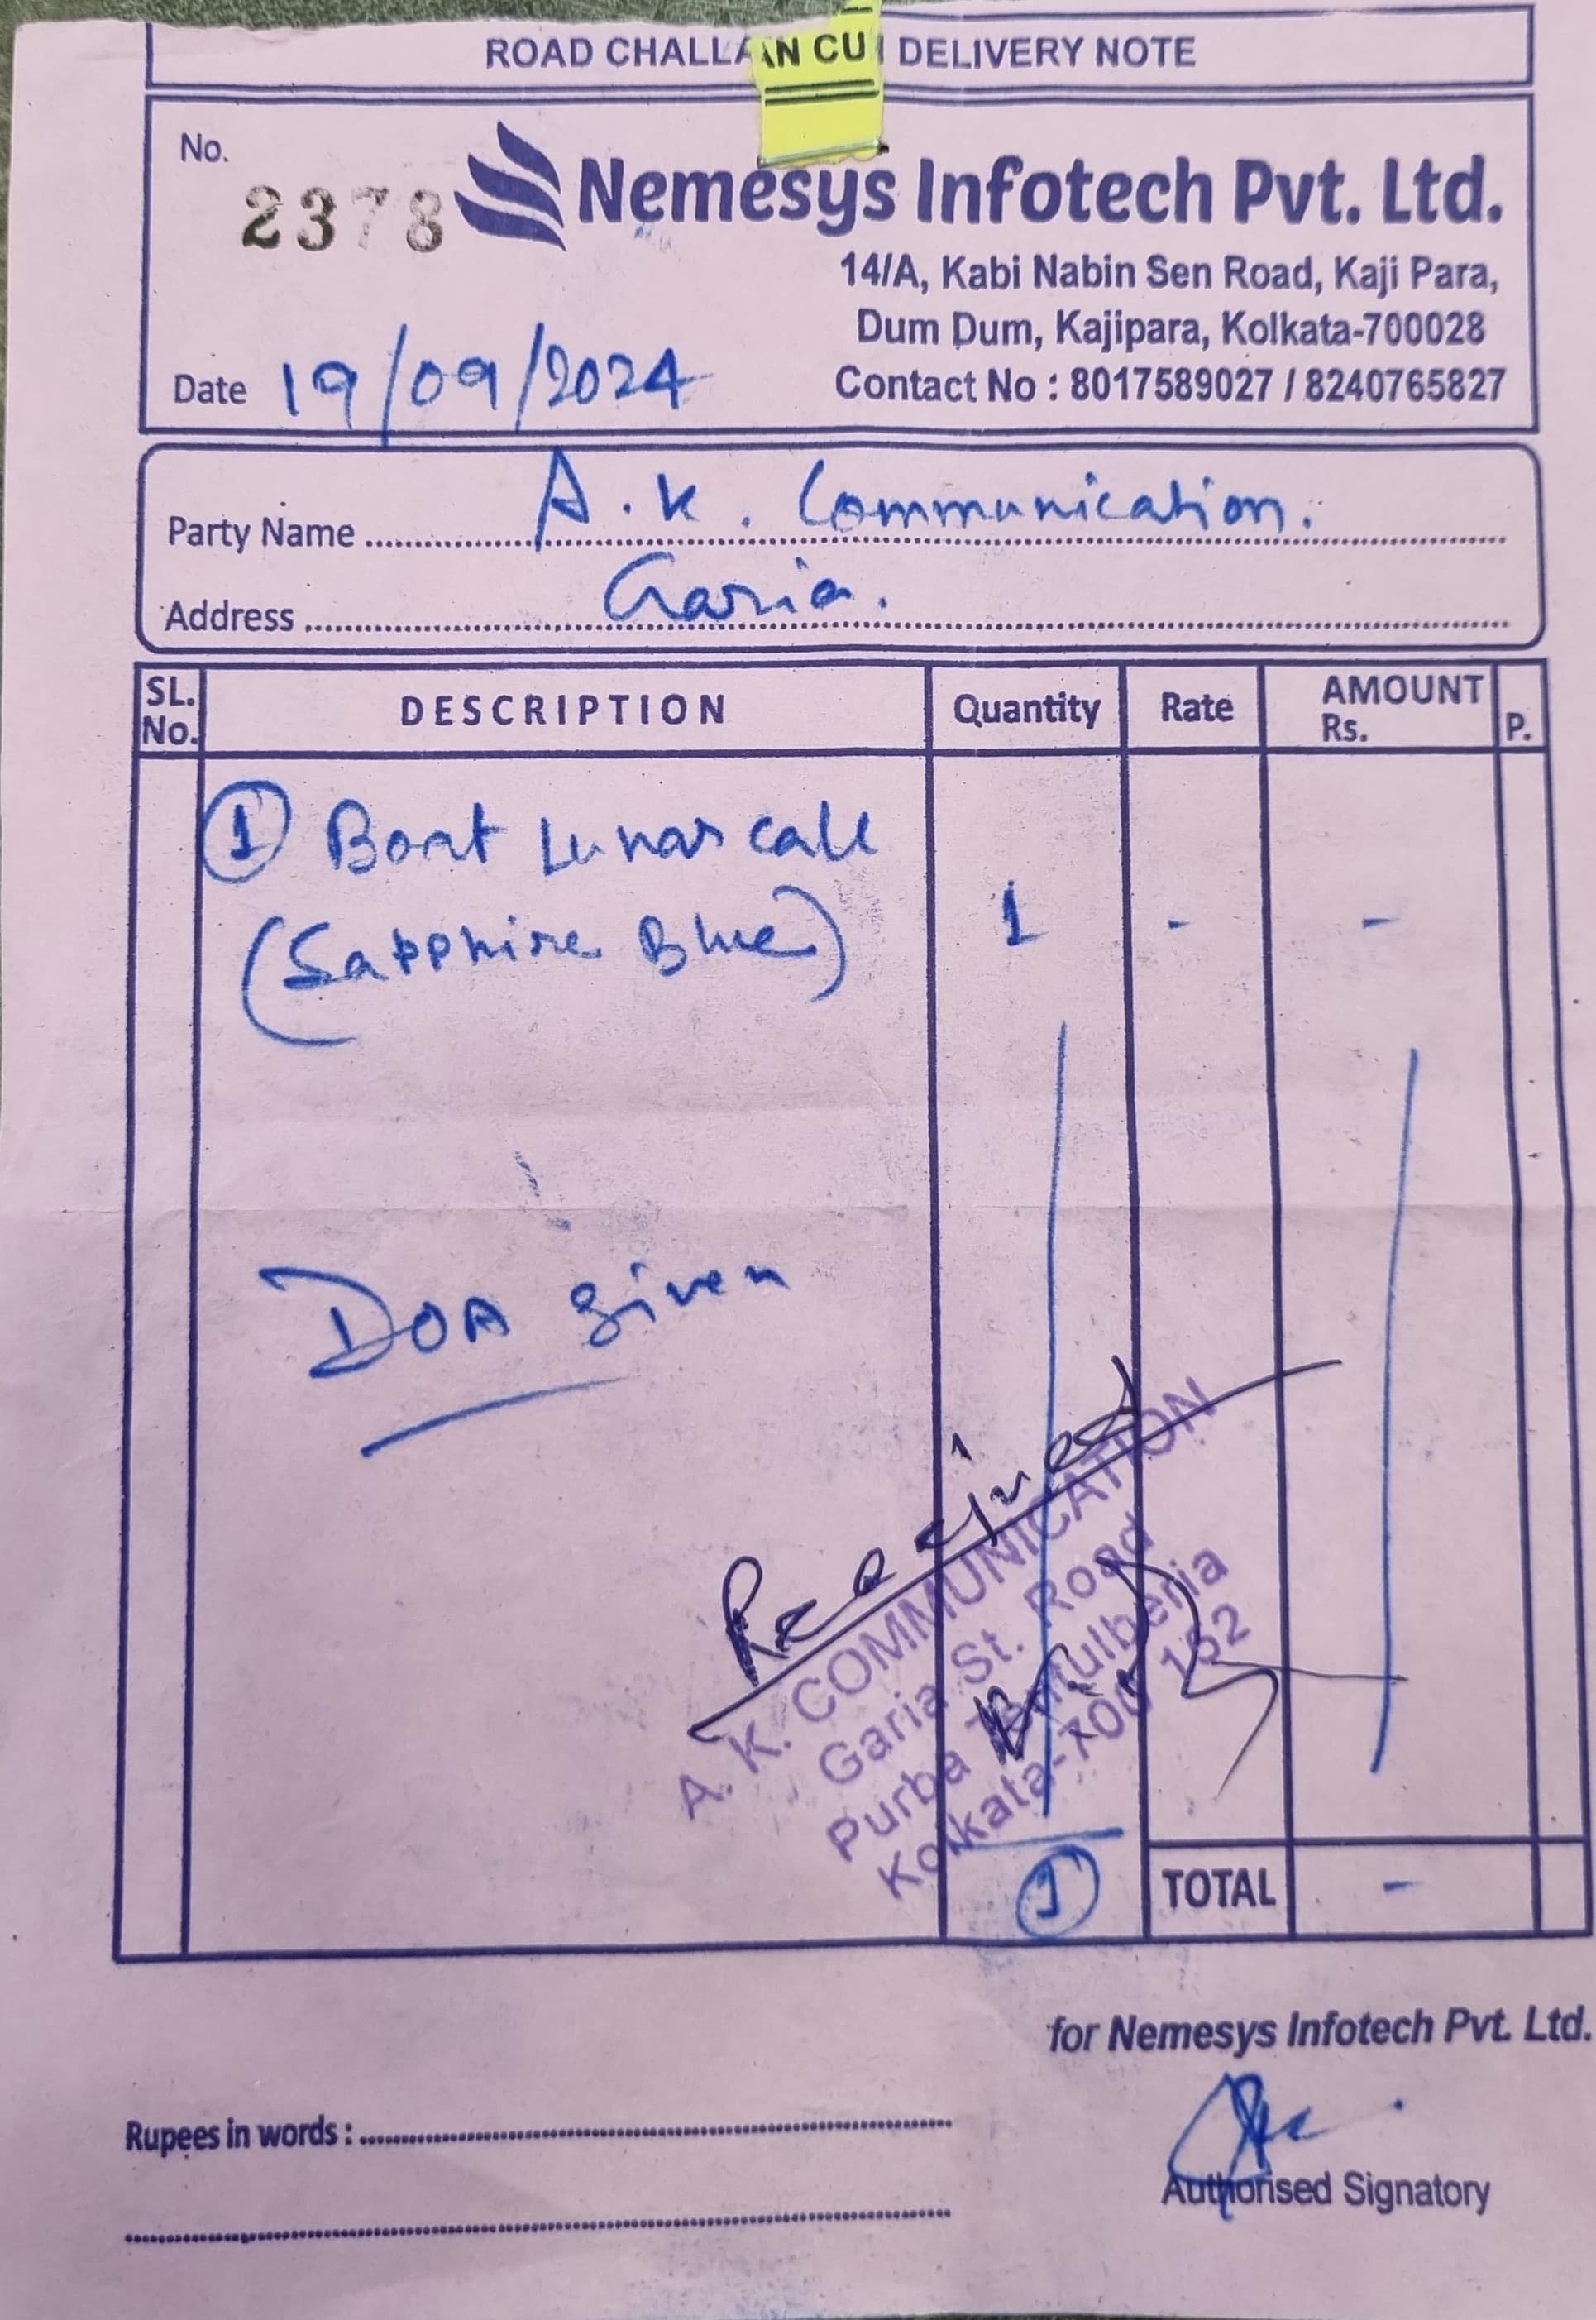 ROAD CHALLAN CU DELIVERY NOTE
No. 2378
Nemesys Infotech Pvt. Ltd.
14/A, Kabi Nabin Sen Road, Kaji Para,
Dum Dum, Kajipara, Kolkata-700028
Contact No : 8017589027 / 8240765827
Date 19/09/2024
Party Name A.K. Communication.
Address Garia.
SL. No. DESCRIPTION Quantity Rate AMOUNT Rs. P.
① Boat Lunar call
(Sapphire Blue) 1 - -
DOA given
Received
A. K. COMMUNICATION
Garia St. Road
Purba Tentulberia
Kolkata-700 152
① TOTAL -
for Nemesys Infotech Pvt. Ltd.
Rupees in words :
Authorised Signatory